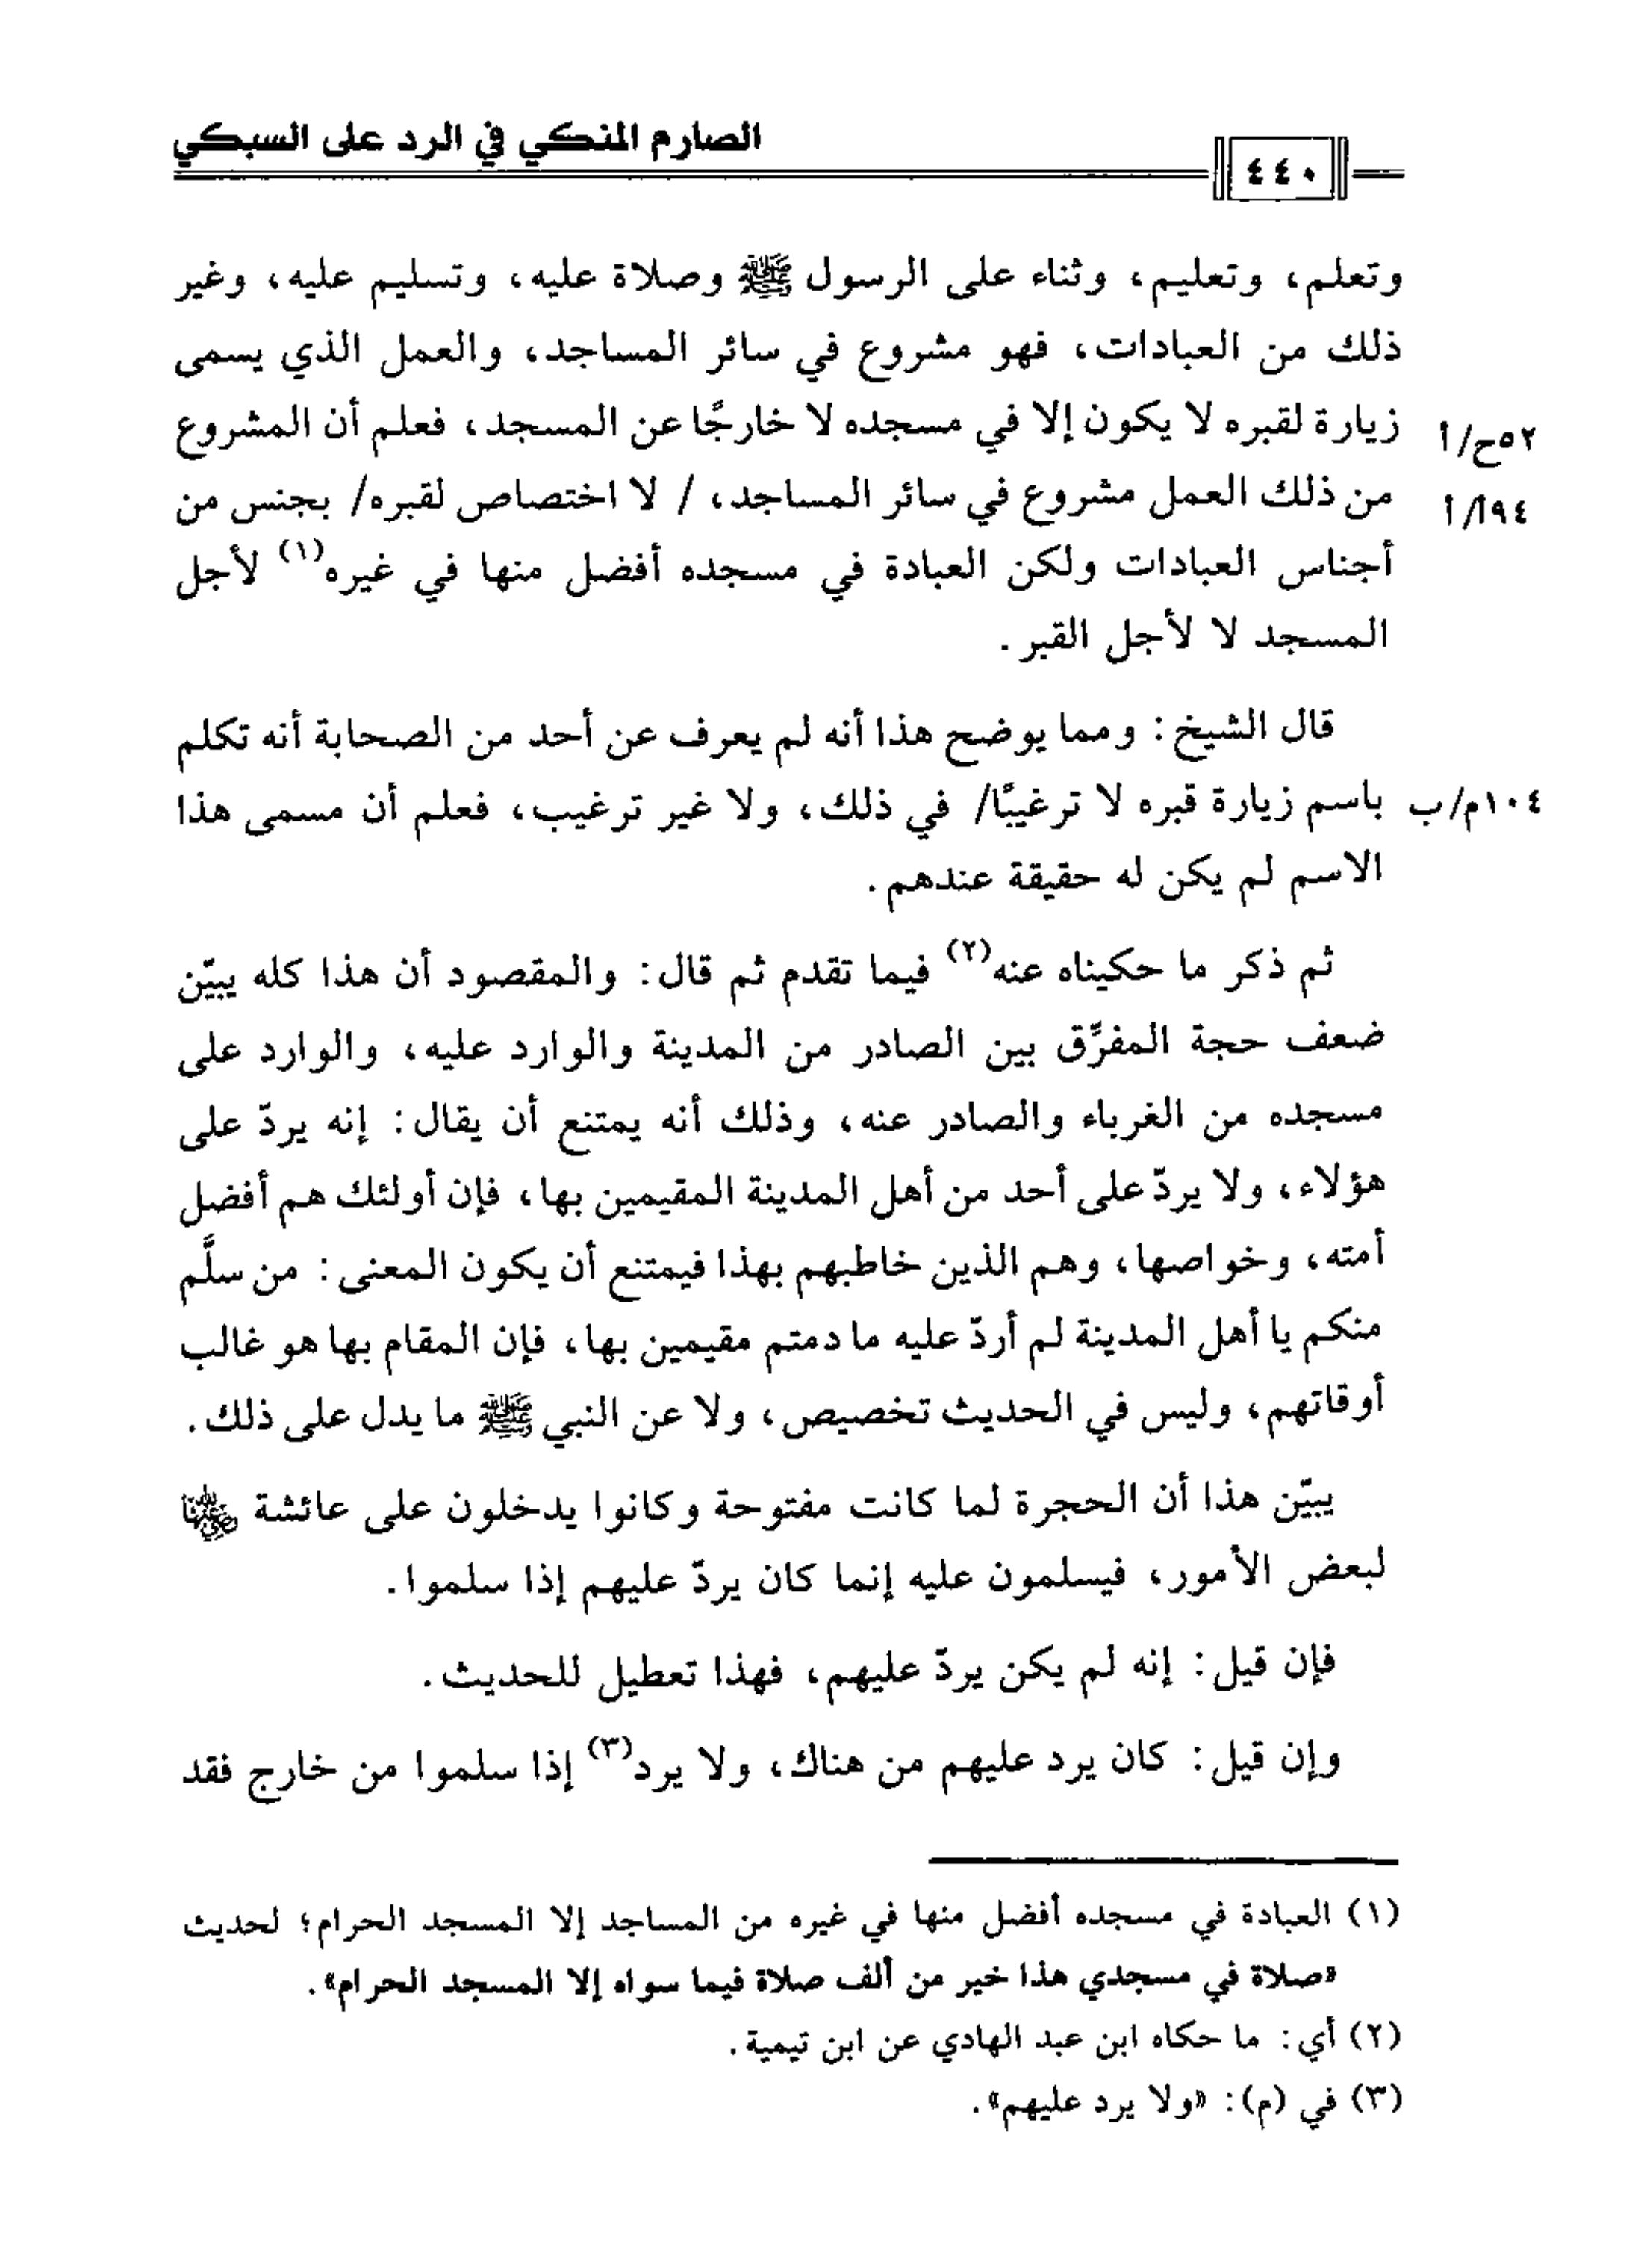 الصارم المنكي في الرد على السبكي
٤٤٠
وتعلم، وتعليم، وثناء على الرسول ﷺ وصلاة عليه، وتسليم عليه، وغير
ذلك من العبادات، فهو مشروع في سائر المساجد، والعمل الذي يسمى
زيارة لقبره لا يكون إلا في مسجده لا خارجًا عن المسجد، فعلم أن المشروع
٥٢ح/أ
من ذلك العمل مشروع في سائر المساجد، / لا اختصاص لقبره/ بجنس من
١٩٤أ/أ
أجناس العبادات ولكن العبادة في مسجده أفضل منها في غيره(١) لأجل
المسجد لا لأجل القبر.
قال الشيخ: ومما يوضح هذا أنه لم يعرف عن أحد من الصحابة أنه تكلم
باسم زيارة قبره لا ترغيبًا/ في ذلك، ولا غير ترغيب، فعلم أن مسمى هذا
١٠٤م/ب
الاسم لم يكن له حقيقة عندهم.
ثم ذكر ما حكيناه عنه(٢) فيما تقدم ثم قال: والمقصود أن هذا كله يبيّن
ضعف حجة المفرِّق بين الصادر من المدينة والوارد عليه، والوارد على
مسجده من الغرباء والصادر عنه، وذلك أنه يمتنع أن يقال: إنه يردّ على
هؤلاء، ولا يردّ على أحد من أهل المدينة المقيمين بها، فإن أولئك هم أفضل
أمته، وخواصها، وهم الذين خاطبهم بهذا فيمتنع أن يكون المعنى: من سلَّم
منكم يا أهل المدينة لم أردّ عليه ما دمتم مقيمين بها، فإن المقام بها هو غالب
أوقاتهم، وليس في الحديث تخصيص، ولا عن النبي ﷺ ما يدل على ذلك.
يبيّن هذا أن الحجرة لما كانت مفتوحة وكانوا يدخلون على عائشة رضي الله عنها
لبعض الأمور، فيسلمون عليه إنما كان يردّ عليهم إذا سلموا.
فإن قيل: إنه لم يكن يردّ عليهم، فهذا تعطيل للحديث.
وإن قيل: كان يرد عليهم من هناك، ولا يرد(٣) إذا سلموا من خارج فقد
(١) العبادة في مسجده أفضل منها في غيره من المساجد إلا المسجد الحرام؛ لحديث
«صلاة في مسجدي هذا خير من ألف صلاة فيما سواه إلا المسجد الحرام».
(٢) أي: ما حكاه ابن عبد الهادي عن ابن تيمية.
(٣) في (م): «ولا يرد عليهم».